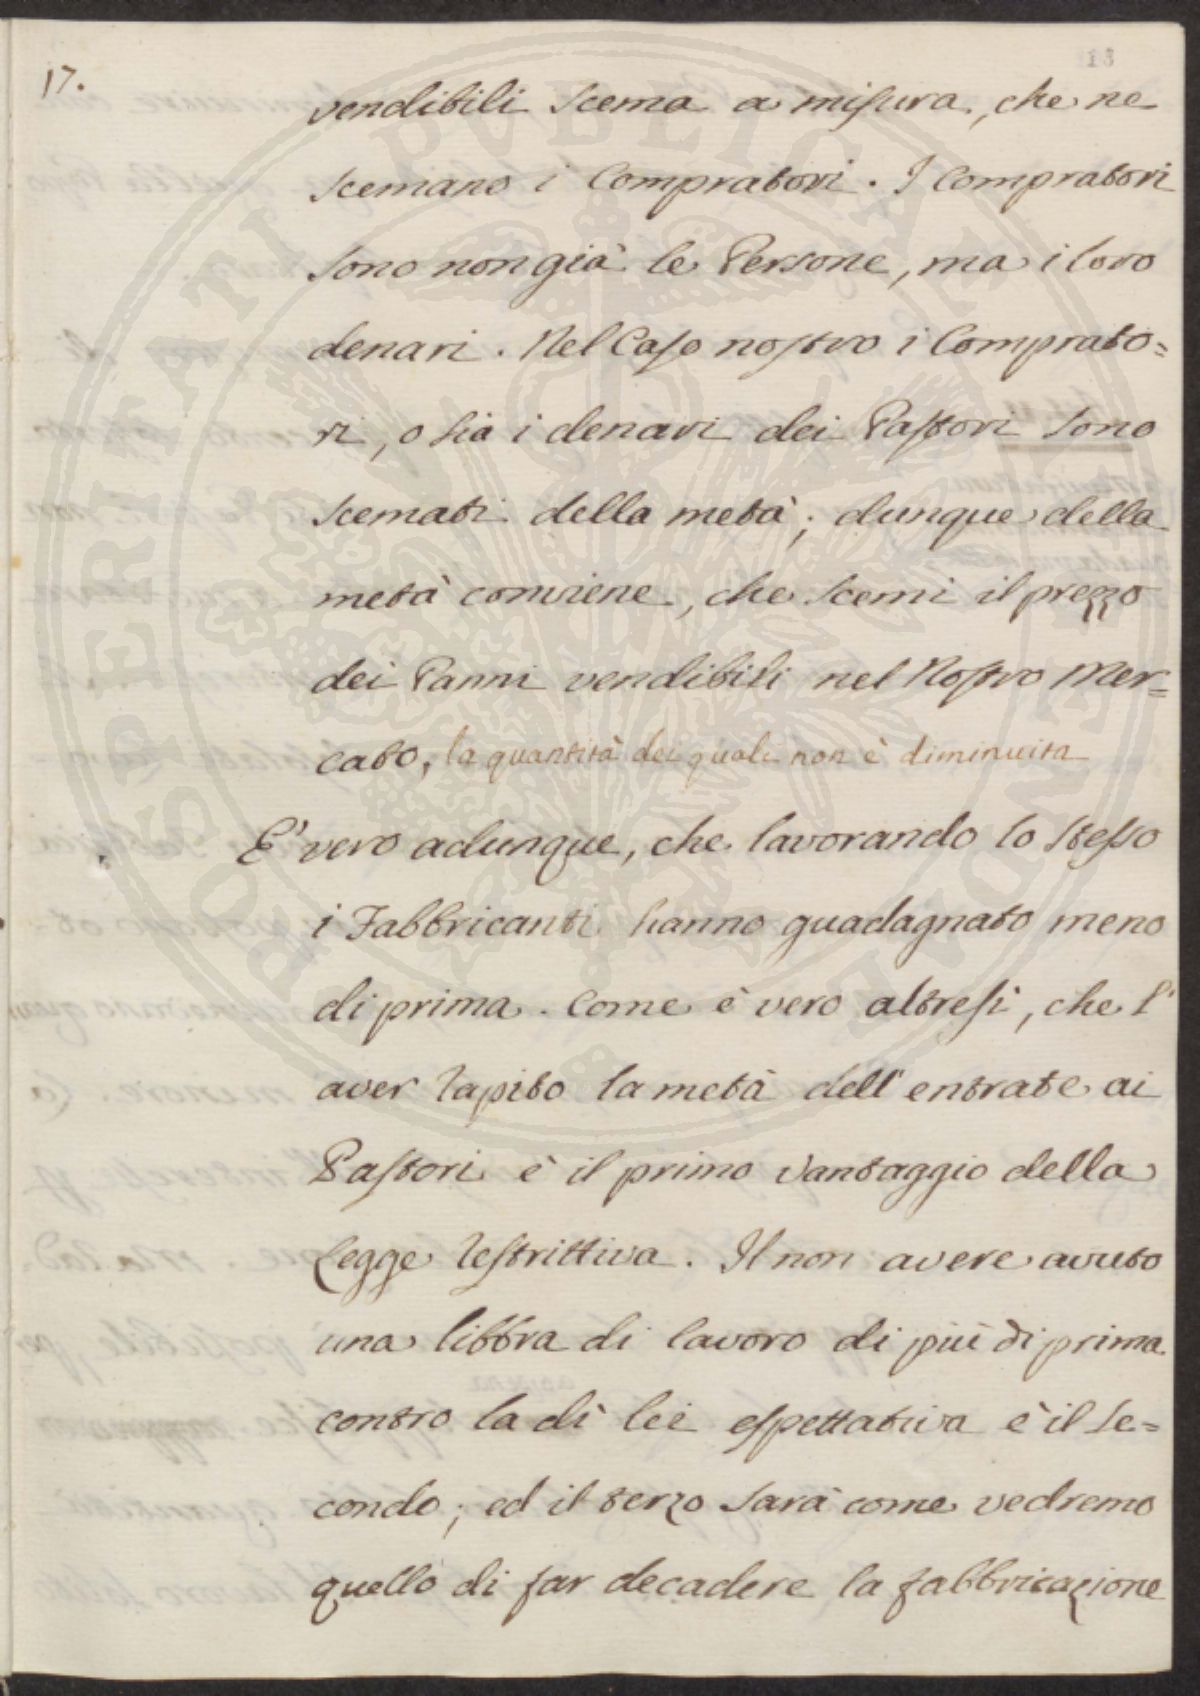 13
17.
vendibili scema a misura, che ne
scemano i Compratori. I Compratori
sono non già le Persone, ma i loro
denari. Nel Caso nostro i Comprato=
ri, o sia i denari dei Pastori sono
scemati della metà; dunque della
metà conviene, che scemi il prezzo
dei Panni vendibili nel Nostro Mer=
cato, la quantità dei quali non è diminuita
E' vero adunque, che lavorando lo stesso
i Fabbricanti hanno guadagnato meno
di prima. Come è vero altresì, che l'
aver rapito la metà dell'entrate ai
Pastori è il primo vantaggio della
Legge restrittiva. Il non avere avuto
una libbra di lavoro di più di prima
contro la di lei espettativa è il se=
condo; ed il terzo sarà come vedremo
quello di far decadere la fabbricazione
PROSPERITATI PUBLICAE